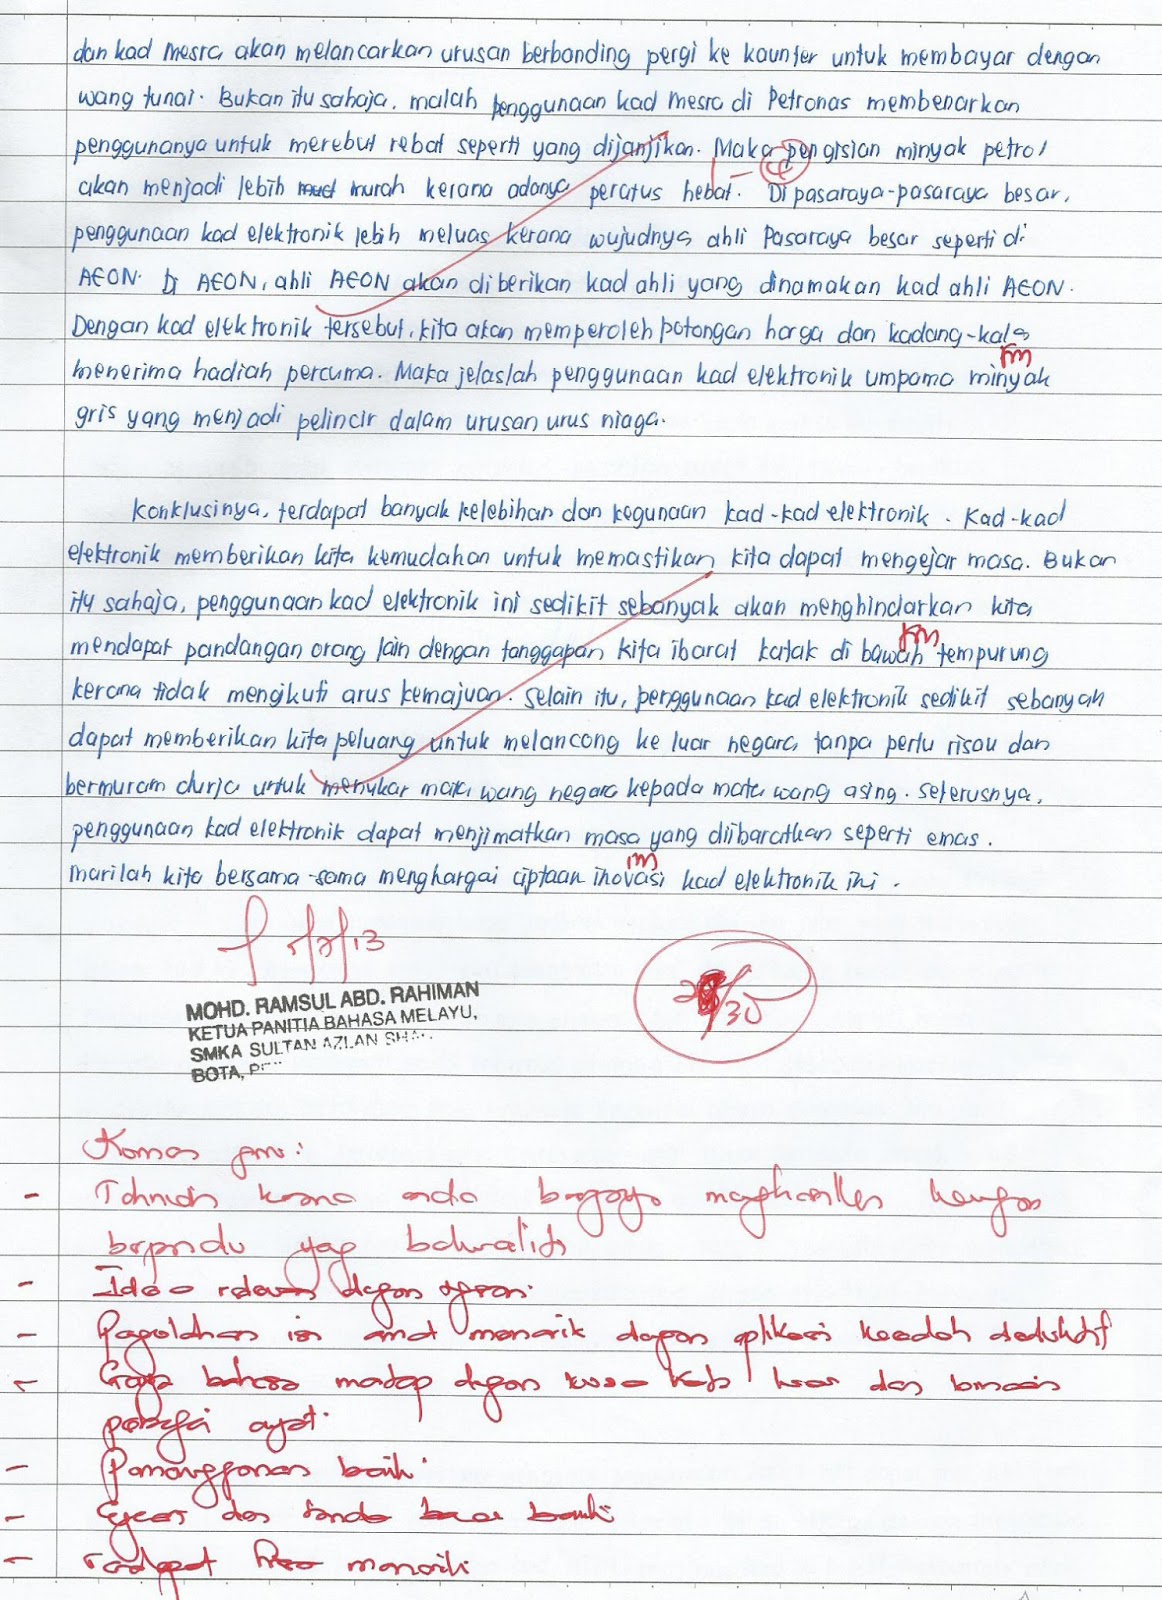 dan kad mesra akan melancarkan urusan berbanding pergi ke kaunter untuk membayar dengan
wang tunai. Bukan itu sahaja, malah penggunaan kad mesra di Petronas membenarkan
penggunanya untuk merebut rebat seperti yang dijanjikan. Maka pengisian minyak petrol
akan menjadi lebih murah kerana adanya peratus hebat. Di pasaraya-pasaraya besar,
penggunaan kad elektronik lebih meluas kerana wujudnya ahli Pasaraya besar seperti di
AEON. Di AEON, ahli AEON akan diberikan kad ahli yang dinamakan kad ahli AEON.
Dengan kad elektronik tersebut, kita akan memperoleh potongan harga dan kadang-kala
menerima hadiah percuma. Maka jelaslah penggunaan kad elektronik umpama minyak
gris yang menjadi pelincir dalam urusan urus niaga.
Konklusinya, terdapat banyak kelebihan dan kegunaan kad-kad elektronik. Kad-kad
elektronik memberikan kita kemudahan untuk memastikan kita dapat mengejar masa. Bukan
itu sahaja, penggunaan kad elektronik ini sedikit sebanyak akan menghindarkan kita
mendapat pandangan orang lain dengan tanggapan kita ibarat katak di bawah tempurung
kerana tidak mengikuti arus kemajuan. Selain itu, penggunaan kad elektronik sedikit sebanyak
dapat memberikan kita peluang untuk melancong ke luar negara tanpa perlu risau dan
bermuram durja untuk menukar mata wang negara kepada mata wang asing. Seterusnya,
penggunaan kad elektronik dapat menjimatkan masa yang diibaratkan seperti emas.
Marilah kita bersama-sama menghargai ciptaan inovasi kad elektronik ini.
MOHD. RAMSUL ABD. RAHIMAN
KETUA PANITIA BAHASA MELAYU,
SMKA SULTAN AZLAN
BOTA,
/30
Komen
- Tahniah kerana anda menghasilkan karangan
berpandu yang berkualiti
- Idea relevan dengan
- Pengolahan isi amat menarik dengan aplikasi kaedah deduktif
- Gaya bahasa mantap dengan kosa kata luas dan
pelbagai ayat.
- Pemerengganan baik.
- Ejaan dan tanda baca baik
- Terdapat menarik